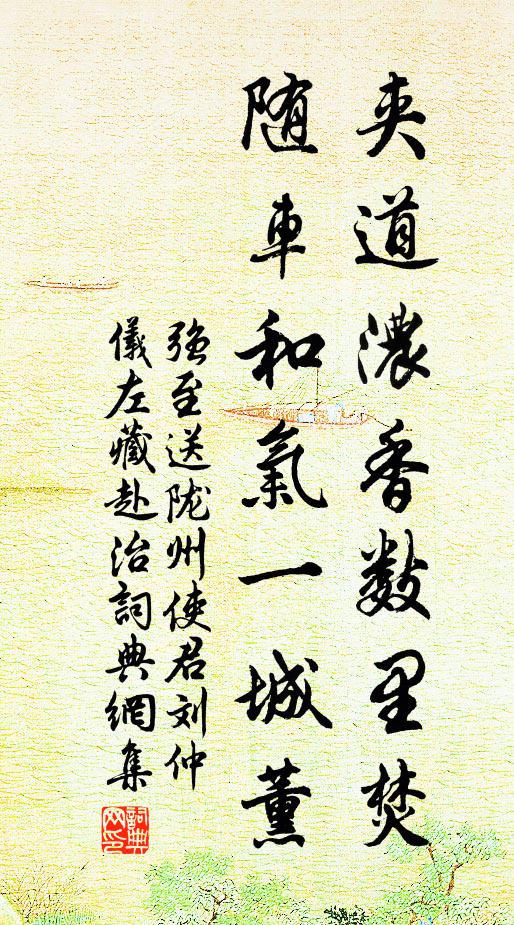 夹道濃香数里焚
随車和氣一城薰
强至送陇州使君刘仲
儀左藏赴治詞典網集
詞典網印